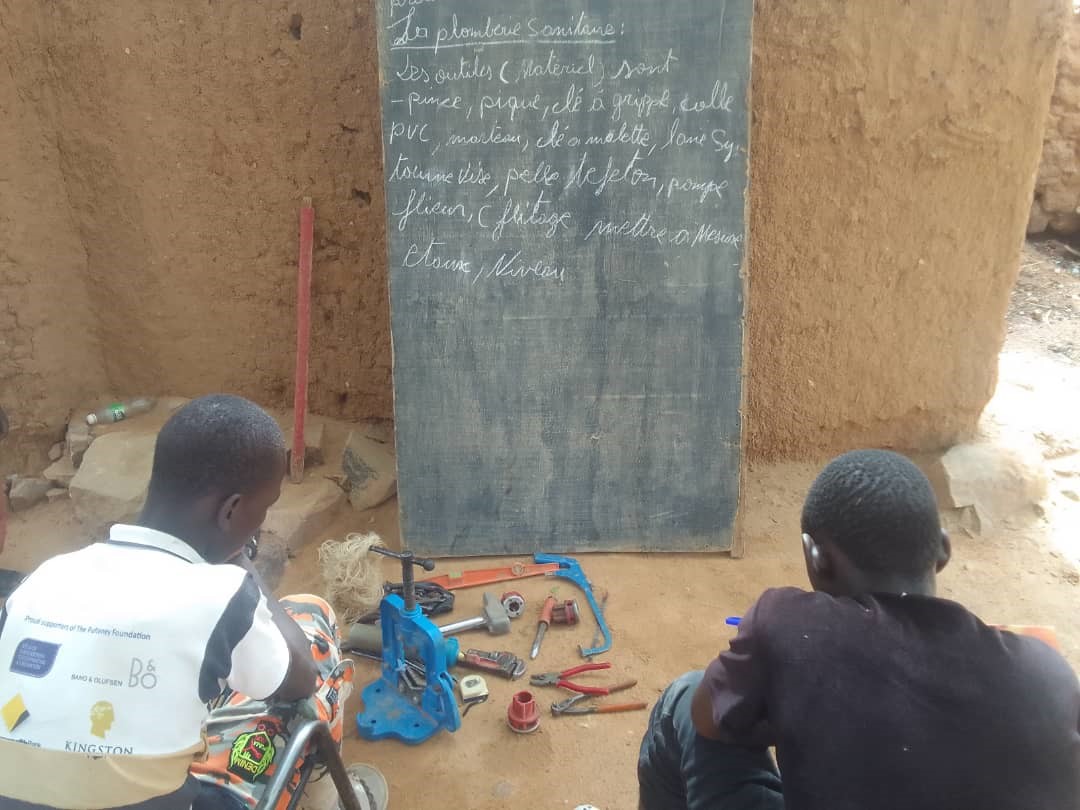 La plomberie Sanitaire :
Les outils (Matériel) sont
- pince, pique, clé à griffe, colle
PVC, marteau, clé a molette,
tourne vise, pelle, pompe
mettre a Mesure
etaux, Niveau
Proud supporters of The Putney Foundation
BANG & OLUFSEN
B&O
KINGSTON
DENIM